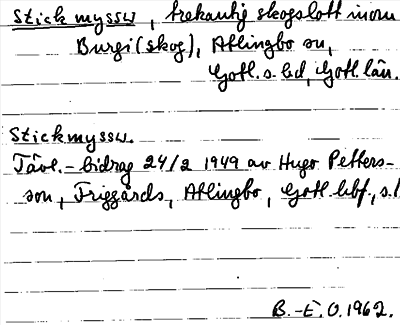 Stickmyssu, trekantig skogslott inom
Burgi (skog), Atlingbo sn,
Gotl. s. hd, Gotl. län.
Stickmyssu.
Tävl.-bidrag 24/2 1949 av Hugo Petters-
son, Friggårds, Atlingbo, Gotl.
B.-E. O. 1962.